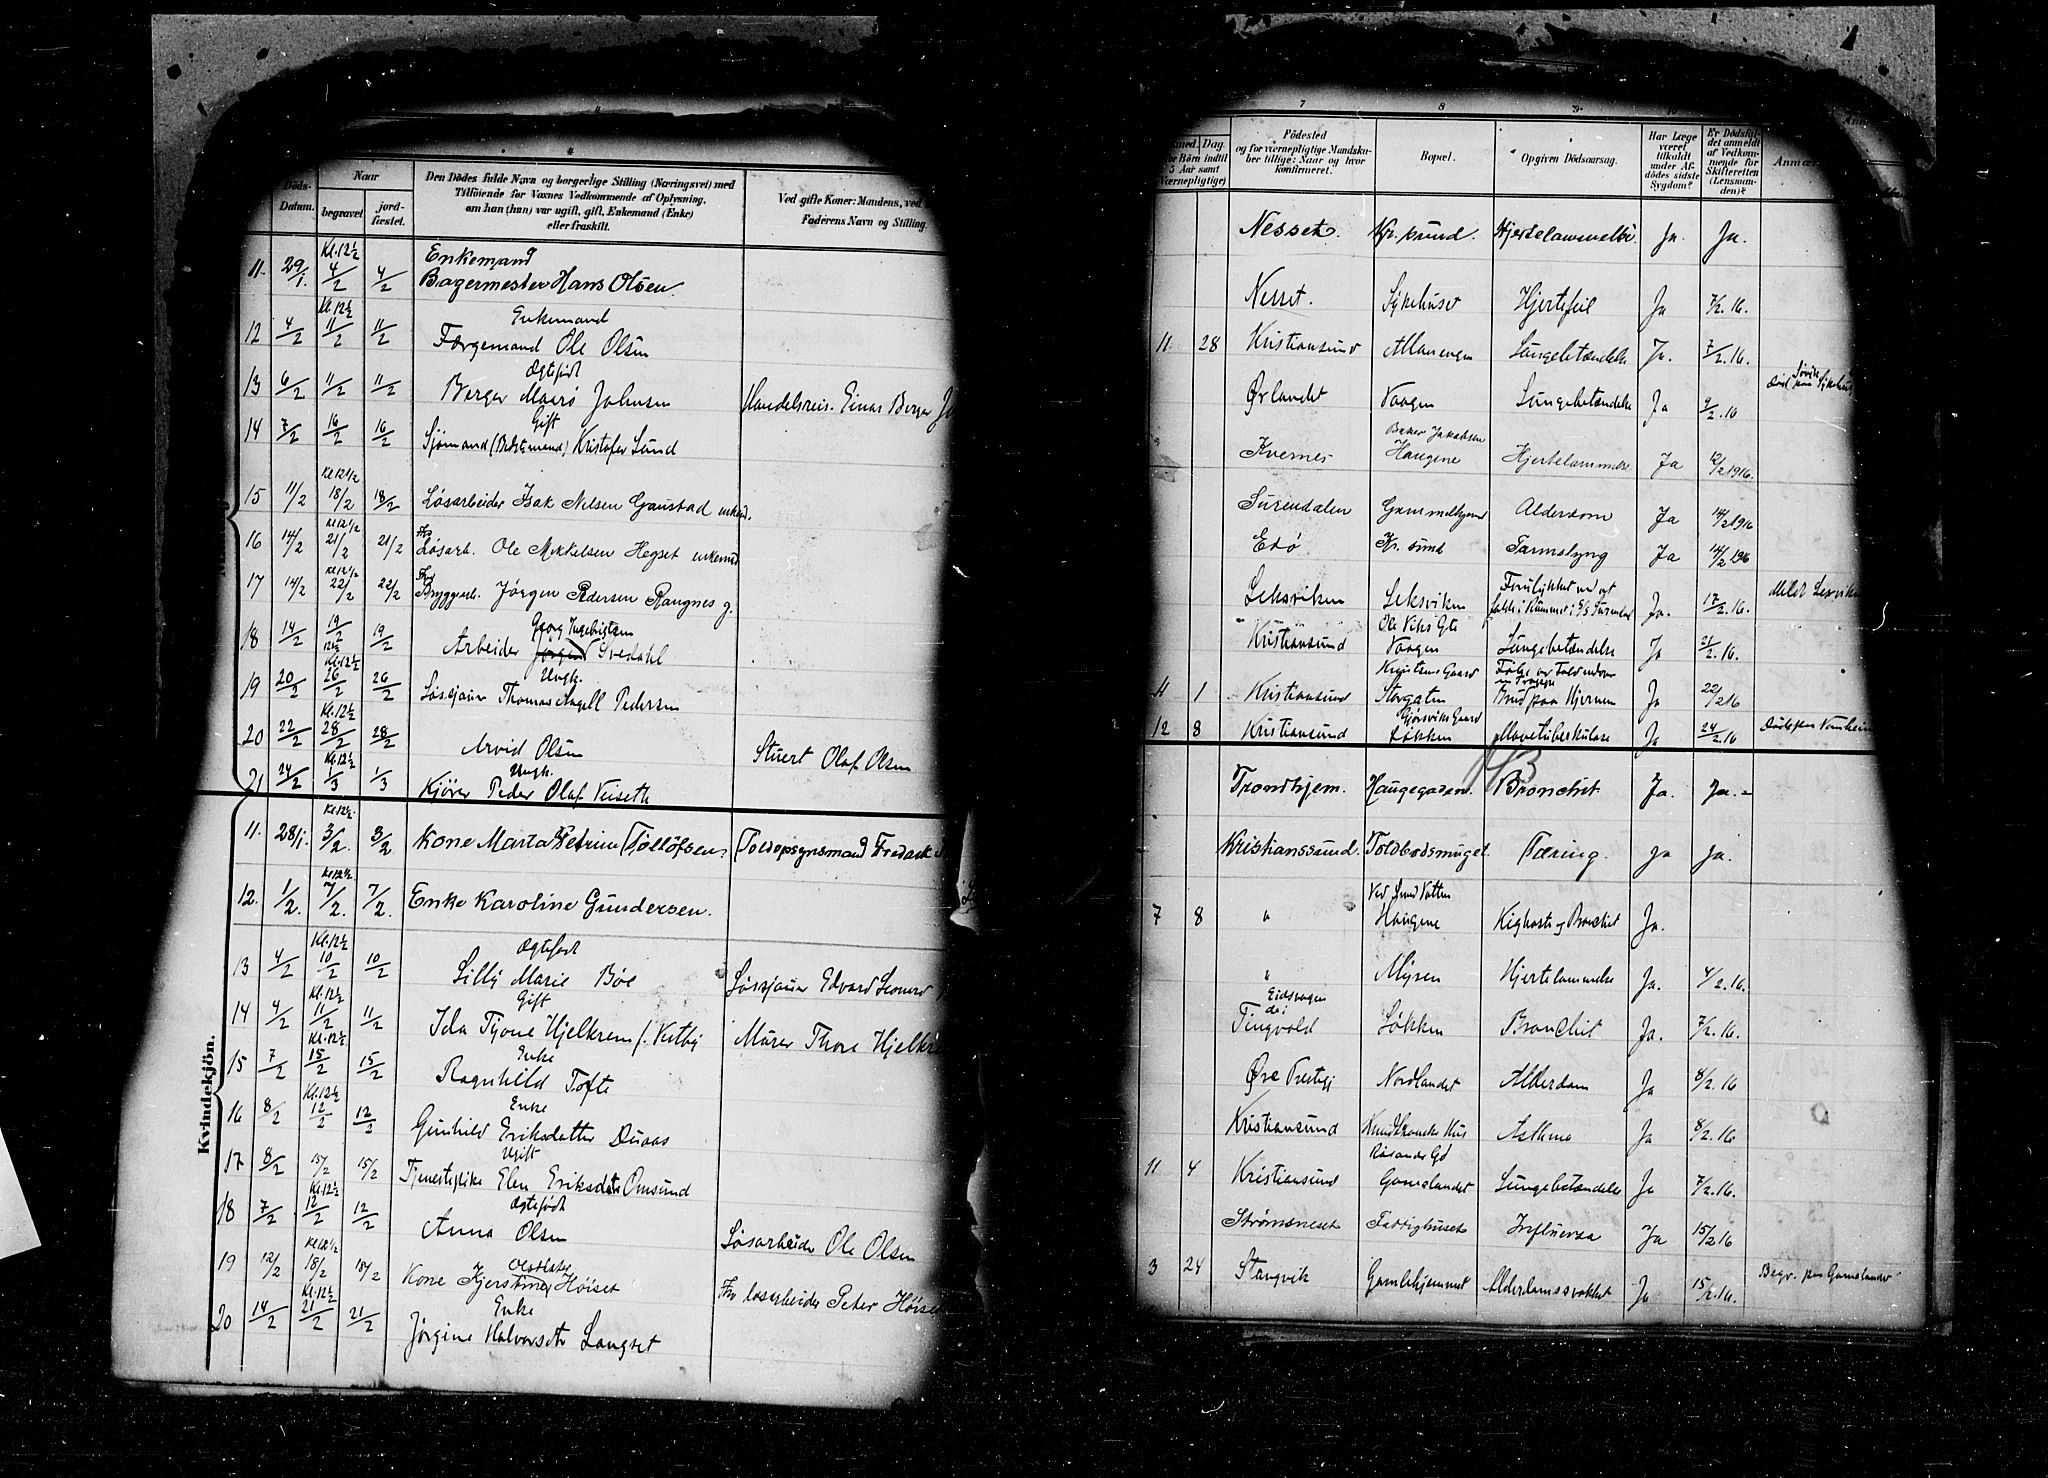 Döds-
Datum.
Naar
begravet
jord-
fæstet.
4
Den Dödes fulde Navn og borgerlige Stilling (Næringsvei) med
Tilföiende for Voxnes Vedkommende af Oplysning,
om han (hun) var ugift, gift, Enkemand (Enke)
eller fraskilt.
Ved gifte Koner: Mandens, ved
Faderens Navn og Stilling.
11. 29/1. Kl.12½ 4/2 4/2 Enkemand
Bagermester Hans Olsen.
12 4/2 Kl.12½ 11/2 11/2 Enkemand
Færgemand Ole Olsen
13 6/2 11/2 11/2 Ægtefødt
Berger Johnsen Handelsreis. Einar Berger
14 7/2 16/2 16/2 Gift
Sjømand Kristofer Lund
15 11/2 Kl 12 1/2 18/2 18/2 Løsarbeider Isak Nilsen Gaustad enkem.
16 14/2 Kl 12 1/2 21/2 21/2 Løsarb. Ole Mikkelsen Hegset enkemd
17 14/2 Kl 12 1/2 22/2 22/2 Bryggearb. Jørgen Pedersen Rangnes g.
18 14/2 19/2 12½ 19/2 Georg Ingebrigtsen
Arbeider Jørgen Svedahl
19 20/2 Kl.12½ 26/2 26/2 Ungk.
Løssjauer Thomas Angell Pedersen
20 22/2 Kl.12½ 28/2 28/2 Arvid Olsen Stuert Olaf Olsen
21 24/2 Kl.12½ 1/3 1/3 Ungk.
Kjører Peder Olaf Veiseth
Kvindekjön.
11. 28/1. Kl.12½. 3/2. 3/2 Kone Marta Petrine Tolløfsen. Toldopsynsmand Fredrik
12. 1/2. Kl 12½. 7/2. 7/2. Enke Karoline Gundersen.
13 4/2 Kl.12½ 10/2 10/2 Ægtefødt
Lilly Marie Bøe Løssjauer Edvard Leonard
14 4/2 Kl.12½ 11/2 11/2 Gift
Ida Hjelkrem f. Vetby Murer Thore Hjelkr
15 7/2 Kl.12½ 15/2 15/2 Enke
Ragnhild Tofte
16 8/2 Kl.12½ 12/2 12/2 Enke
Gunhild Eriksdatter Duaas
17 8/2 15/2 15/2 Ugift
Tjenestepike Elen Eriksdtr Omsund
18 7/2 Kl.12½ 12/2 12/2 Ægtefødt
Anna Olsen Løsarbeider Ole Olsen
19 12/2 Kl 12 1/2 18/2 18/2 Olsdatter
Kone Kjerstine Høiset Fhv løsarbeider Peter Høiset
20 14/2 Kl.12½ 21/2 21/2 Enke
Jørgine Halvorsdtr Langset
7
8
9
10
Dag
for Börn indtil
5 Aar samt
Værnepligtige)
Födested
og for værnepligtige Mandska-
ber tillige: Naar og hvor
konfirmeret.
Bopæl.
Opgiven Dödsaarsag.
Har Læge
været
tilkaldt
under Af-
dödes sidste
Sygdom?
Er Dödsfal-
det anmeldt
af Vedkom-
mende for
Skifteretten
(Lensman-
den)?
Anmæ
Nesset. Kr. sund. Hjertelammelse. Ja. Ja.
Nesset. Sykehuset Hjertefeil Ja 7/2.16.
11 28 Kristiansund Allanengen Lungebetændelse Ja. 7/2.16.
Ørlandet Vaagen Lungebetændelse Ja 9/2.16 død paa Sykehus
Kvernes Baker Jakobsen
Haugene Hjertelammelse Ja 12/2 1916.
Surendalen Gammelhjemd Alderdom Ja 14/2 1916
Edø Kr. sund Tarmslyng Ja 14/2 1916
Leksviken Leksviken Forulykket ved at
falde i Rummet i S/S Surendal Ja. 17/2.16. Meldt Lexviken
Kristiansund Ole Viks Gt
Vaagen Lungebetændelse Ja 21/2.16.
11 1 Kristiansund Storgaten Ja 22/2 16
Brud paa Hjernen
12 8 Kristiansund Gjørsviks Gaard
Løkken Mavetuberkulose Ja 24/2.16
Trondhjem. Haugegaden. Bronchit. Ja. Ja.
Kristianssund. Toldbodsmuget. Tæring. Ja Ja.
7 8 " Ved Lund Vatten
Haugene Kighoste og Bronchit Ja.
" Myren Hjertelammelse Ja. 4/2.16.
Eidsvagen
Tingvold Løkken Bronchit Ja. 7/2.16.
Øre Prestegj Nordlandet Alderdom Ja 8/2.16
Kristiansund Asthma Ja 8/2.16
11 4 Kristiansund Gomalandet Lungebetændelse Ja 7/2.16.
Strømsneset Fattighuset Influenza Ja 15/2 16
3 24 Stangvik Gamlehjemmet Alderdomssvakhet Ja 15/2.16. Begr. paa Gomalandet